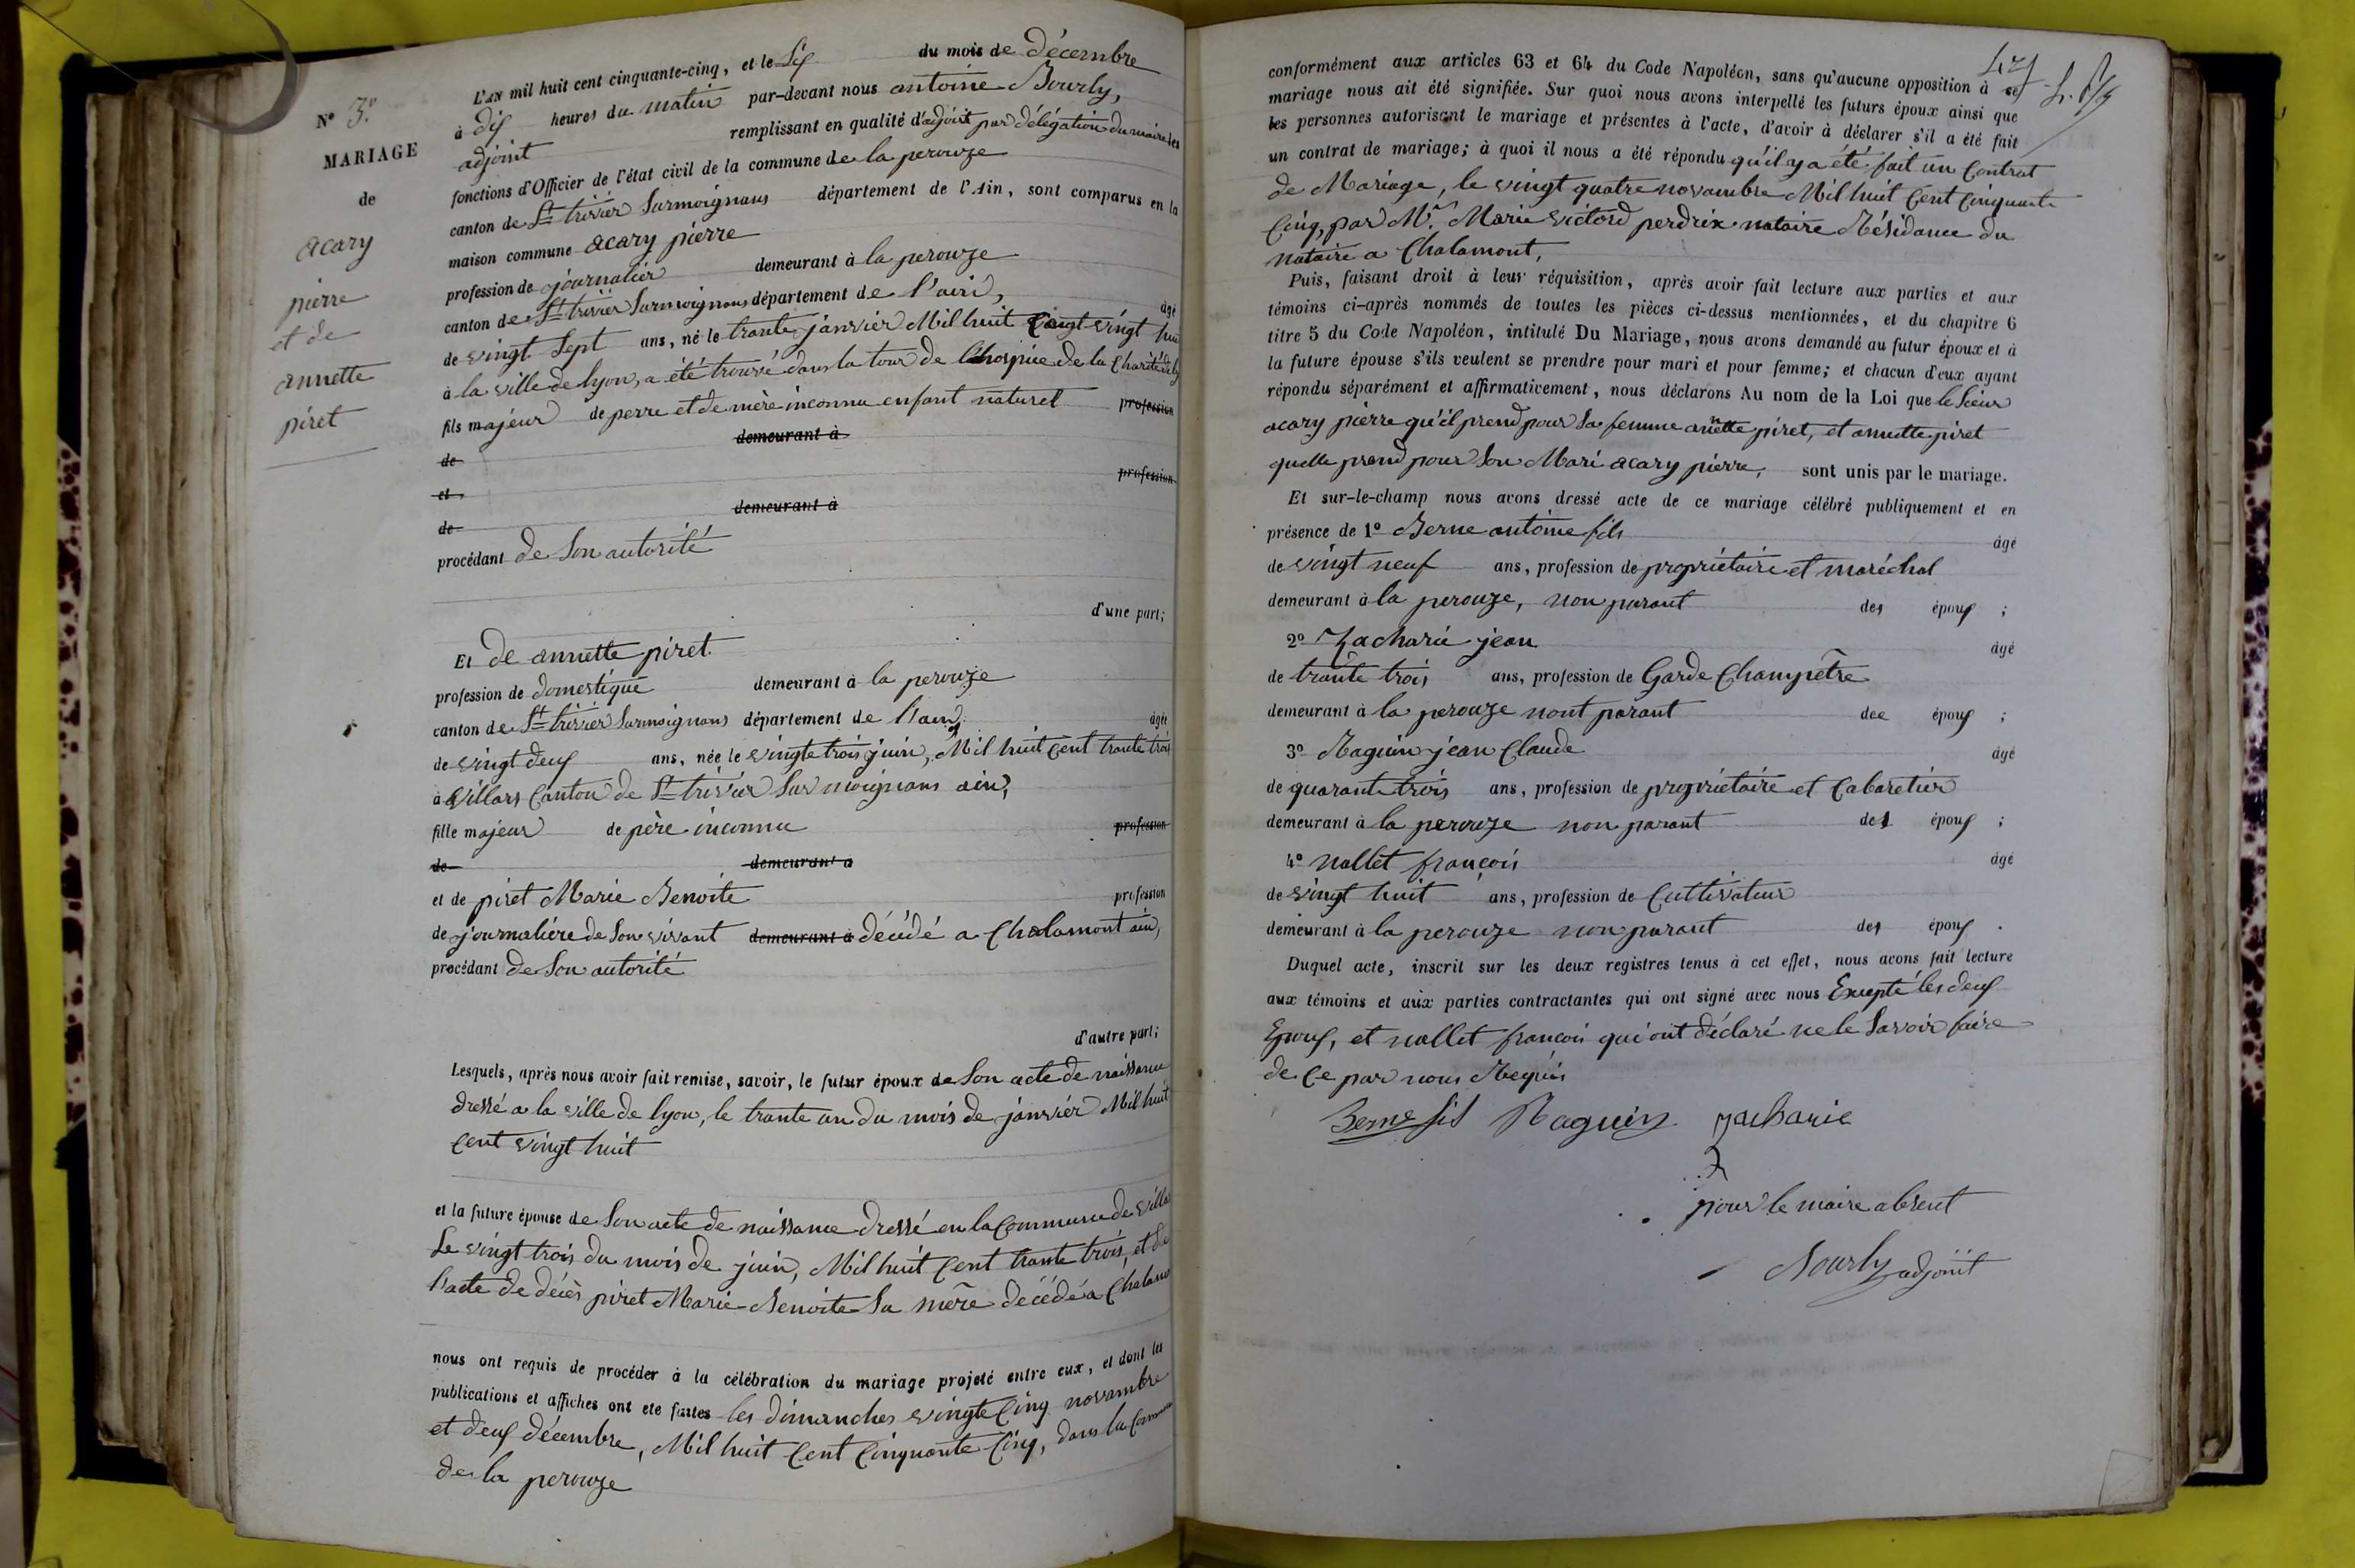 N° 3.e
MARIAGE
de
acary
pierre
et de
annette
piret
L'an mil huit cent cinquante-cinq, et le Six du mois de décembre
à dix heures du matin par-devant nous antoine Bourly,
adjoint remplissant en qualité d'adjoint par délégation du maire les
fonctions d'Officier de l'état civil de la commune de la perouze
canton de St trivier Surmoignans département de l'Ain, sont comparus en la
maison commune acary pierre
profession de journalier demeurant à la perouze
canton de St trivier Surmoignans département de l'ain, âgé
de vingt Sept ans, né le trante janvier Mil huit Cengt vingt hui
à la ville de lyon, a été trouvé dans la tour de l'hospice de la Charité
fils majeur de perre et de mère inconnu enfant naturel profession
de demeurant à
et profession
de demeurant à
procédant de Son autorité
d'une part;
Et de annette piret
profession de domestique demeurant à la perouze
canton de St trivier Surmoignans département de l'ain, âgée
de vingt deux ans, née le vingte trois juin, Mil huit Cent trante trois
à Villars Canton de St trivier Sur moignans ain,
fille majeur de père inconnu profession
de demeurant à
et de piret Marie Benoite profession
de journalière de Son vivant demeurant à décédé a Chalamont ain,
procédant de Son autorité
d'autre part;
Lesquels, après nous avoir fait remise, savoir, le futur époux de Son acte de naissance
dressé a la ville de lyon, le trante un du mois de janvier Mil huit
Cent vingt huit
et la future épouse de Son acte de naissance dressé en la Commune de villa
Le vingt trois du mois de juin, Mil huit Cent trante trois, et de
l'acte de décès piret Marie-Benoite Sa mère décédé a Chalam
nous ont requis de procéder à la célébration du mariage projeté entre eux, et dont les
publications et affiches ont été faites les dimanches vingte Cinq novambre
et deux décembre, Mil huit Cent Cinquante Cinq, dans la Commune
de la perouze
conformément aux articles 63 et 64 du Code Napoléon, sans qu'aucune opposition à ce
mariage nous ait été signifiée. Sur quoi nous avons interpellé les futurs époux ainsi que
les personnes autorisant le mariage et présentes à l'acte, d'avoir à déclarer s'il a été fait
un contrat de mariage; à quoi il nous a été répondu qu'il y a été fait un Contrat
de Mariage, le vingt quatre novambre Mil huit Cent Cinquante
Cinq, par Mr. Marie victord perdrix notaire Résidance du
notaire a Chalamont,
Puis, faisant droit à leur réquisition, après avoir fait lecture aux parties et aux
témoins ci-après nommés de toutes les pièces ci-dessus mentionnées, et du chapitre 6
titre 5 du Code Napoléon, intitulé Du Mariage, nous avons demandé au futur époux et à
la future épouse s'ils veulent se prendre pour mari et pour femme; et chacun d'eux ayant
répondu séparément et affirmativement, nous déclarons Au nom de la Loi que le Sieur
acary pierre qu'il prend pour Sa femme annette piret, et annette piret
quelle prend pour Son Mari acary pierre, sont unis par le mariage.
Et sur-le-champ nous avons dressé acte de ce mariage célébré publiquement et en
présence de 1° Berne antoine fils âgé
de vingt neuf ans, profession de propriétaire et maréchal
demeurant à la perouze, non parant des époux ;
2° Zacharie jean âgé
de trante trois ans, profession de Garde Champêtre
demeurant à la perouze nont parant des époux ;
3° Raguin jean Claude âgé
de quarante trois ans, profession de propriétaire et Cabaretier
demeurant à la perouze non parant des époux ;
4° nallet françois âgé
de vingt huit ans, profession de Cultivateur
demeurant à la perouze non parant des époux .
Duquel acte, inscrit sur les deux registres tenus à cet effet, nous avons fait lecture
aux témoins et aux parties contractantes qui ont signé avec nous Excepté les deux
Epoux, et nallet françois qui ont déclaré ne le Savoir faire
de Ce par nous Requis
Berne fils Raguin Zacharie
pour le maire absent
Bourly adjoint